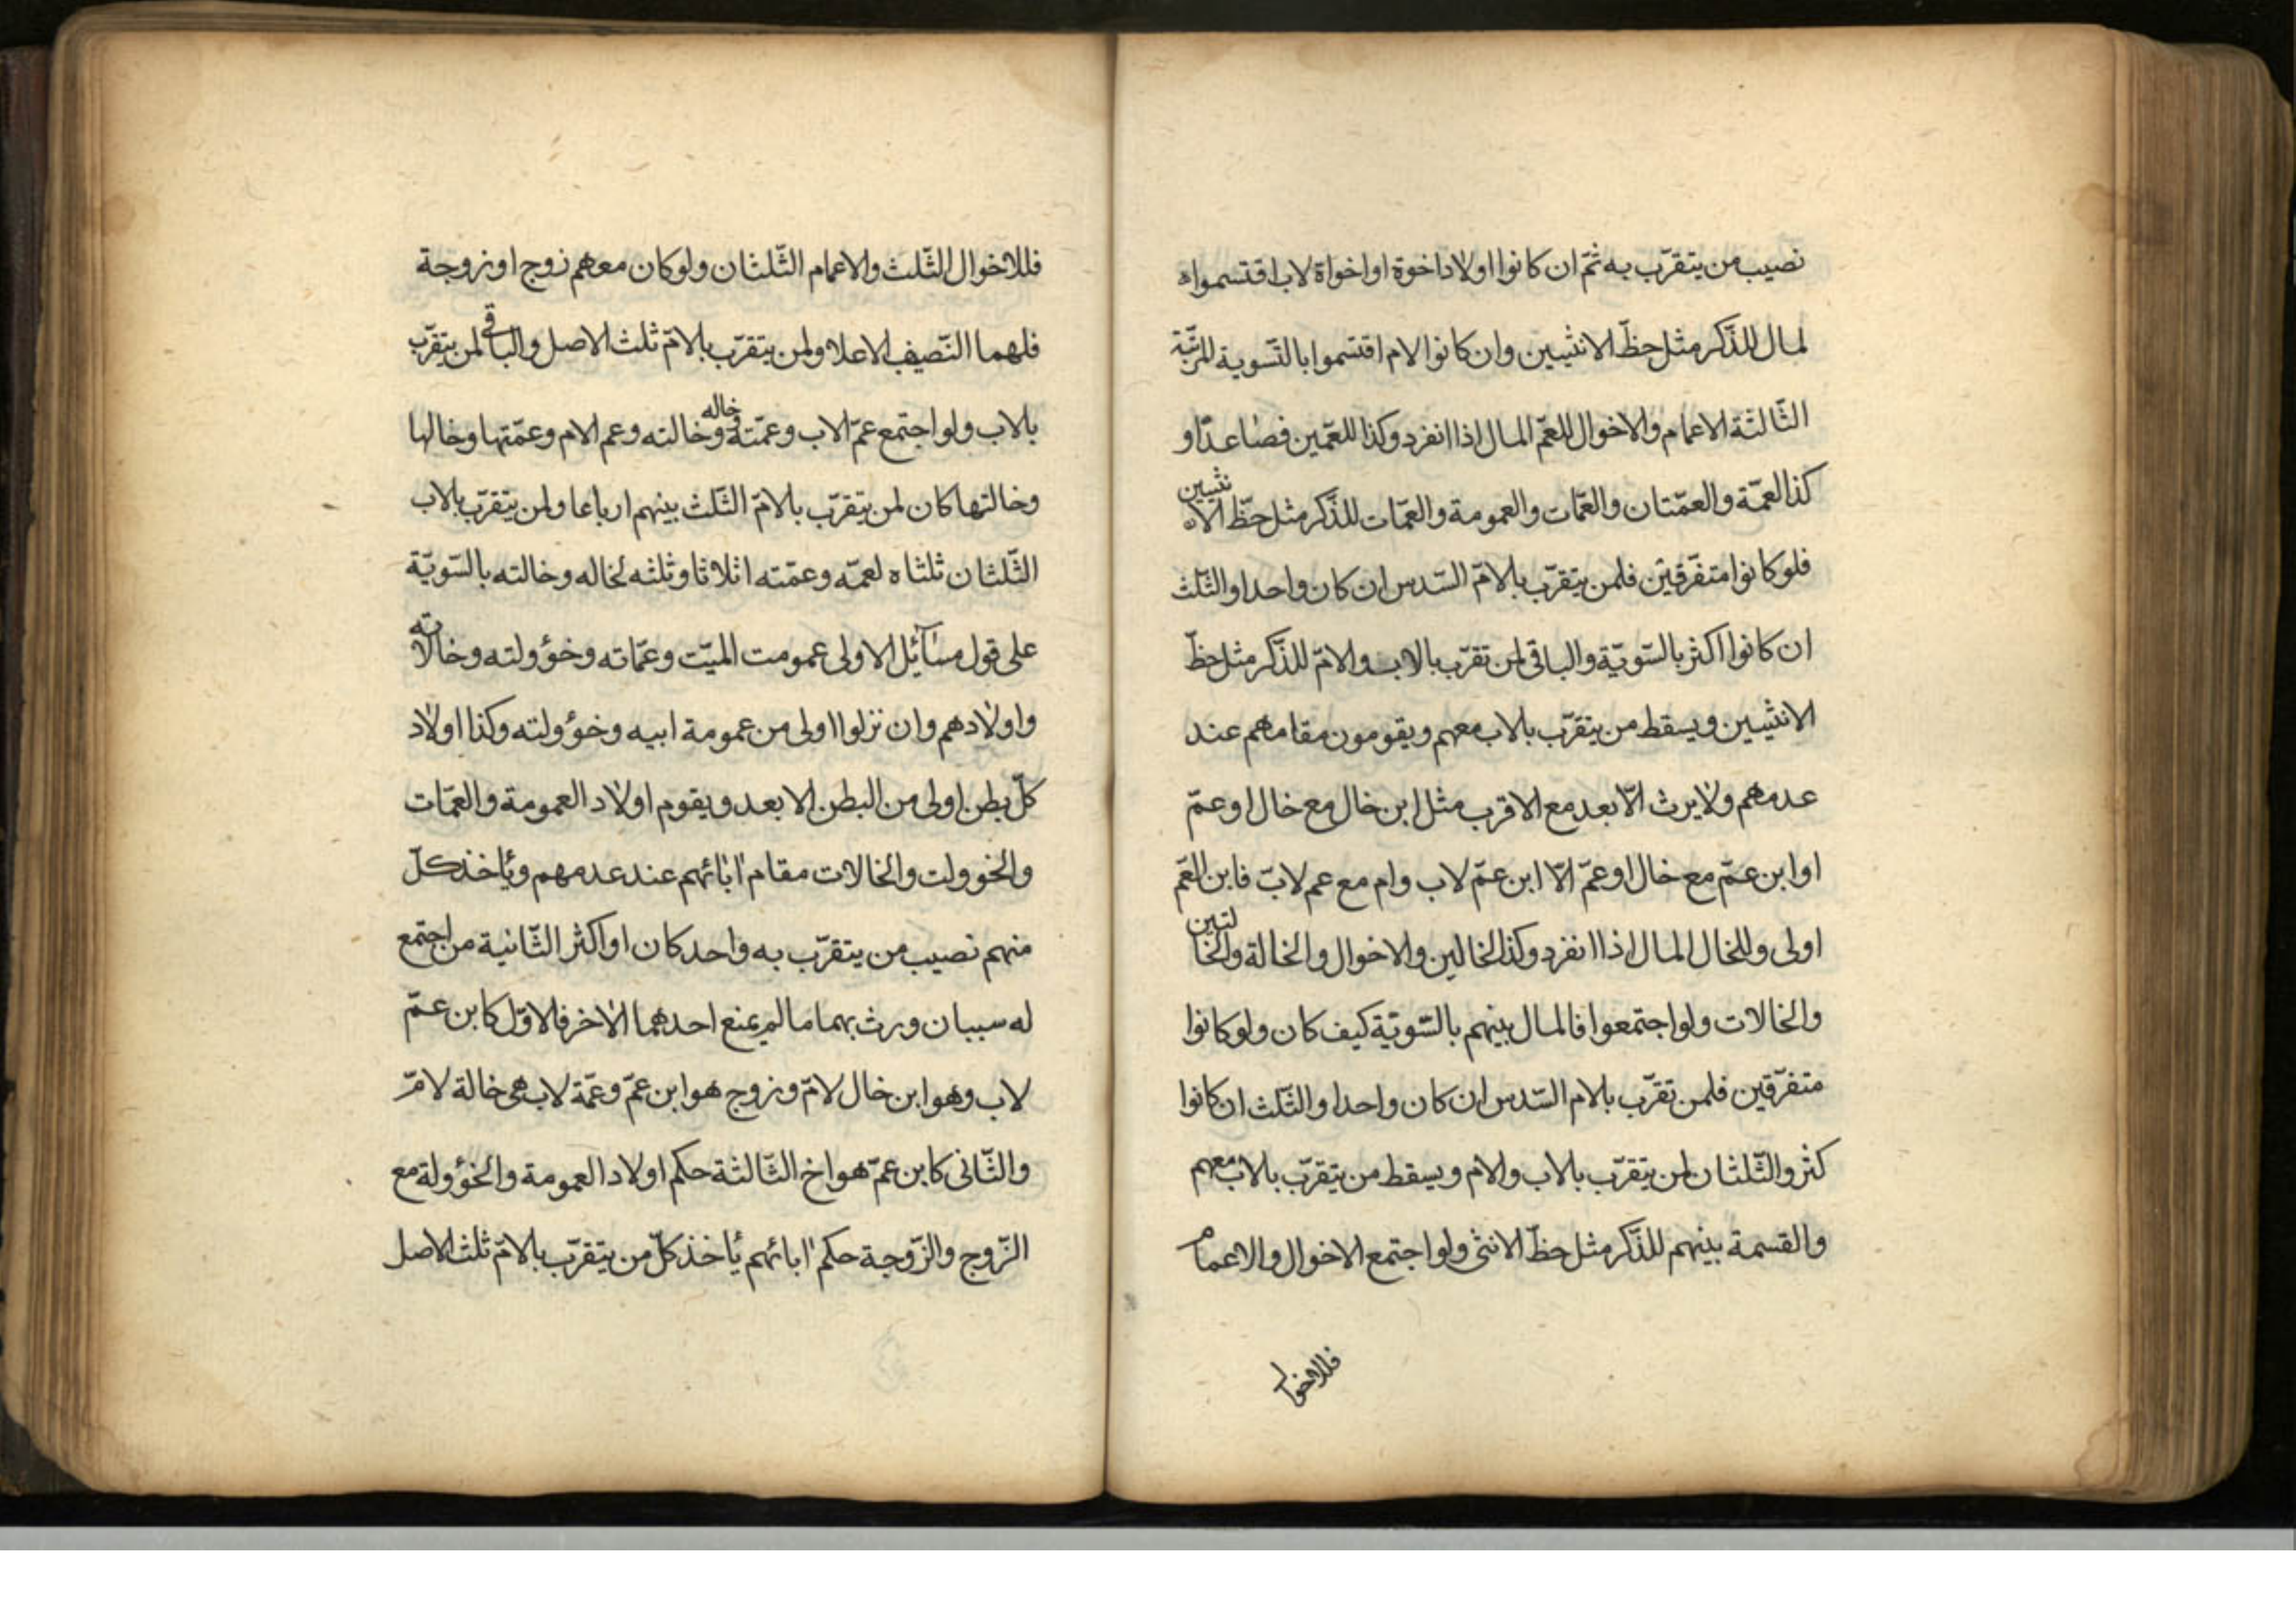 نصيب من يتقرّب به ثمّ ان كانوا اولاد اخوة او اخواة لاب اقتسموا ه
لمال للذّكر مثل حظّ الانثيين وان كانوا لام اقتسموا بالتّسوية المرتّبة
الثّالثة الاعمام والاخوال للعمّ المال اذا انفرد وكذا للعمّين فصاعدّا و
كذا العمّة والعمّتان والعمّات والعمومة والعمّات للذّكر مثل حظّ الانثيين
فلو كانوا متفرّقين فلمن يتقرّب بلامّ السّدس ان كان واحدا والثّلث
ان كانوا اكثر بالسّويّة والباقى لمن تقرّب بالاب والامّ للذّكر مثل حظّ
الانثيين ويسقط من يتقرّب بلاب معهم ويقومون مقامهم عند
عدمهم ولا يرث الّا بعد مع الاقرب مثل ابن خال مع خال او عمّ
او ابن عمّ مع خال او عمّ الّا ابن عمّ لاب وام مع عم لابّ فابن العّم
اولى وللخال المال اذا انفرد وكذا الخالين والاخوال والخالة والخالتين
والخالات ولو اجتمعوا فالمال بينهم بالسّويّة كيف كان ولو كانوا
متفرّقين فلمن تقرّب بلام السّدس ان كان واحدا والثّلث ان كانوا
كثر والثّلثان لمن يتقرّب بلاب والام ويسقط من يتقرّب بلاب معهم
والقسمة بينهم للذّكر مثل حظّ الانثى ولو اجتمع الاخوال والاعمام
فللاخوا
فللاخوال الثّلث والاعمام الثّلثان ولو كان معهم زوج او زوجة
فلهما النّصيف الاعلا ولمن يتقرّب بلامّ ثلث الاصل والباقى لمن يتقرّب
بلاب ولو اجتمع عمّ الاب وعمّته وخاله وخالته وعم الام وعمّتها وخالها
وخالتها كان لمن يتقرّب بلامّ الثّلث بينهم ارباعا ولمن يتقرّب بلاب
الثّلثان ثلثاه لعمّه وعمّته اثلاثا وثلثه لخاله وخالته بالسّويّة
على قول مسائل الاولى عمومت الميّت وعمّاته وخؤولته وخالاته
واولادهم وان نزلوا اولى من عمومة ابيه وخؤولته وكذا اولاد
كلّ بطن اولى من البطن الابعد ويقوم اولاد العمومة والعمّات
والخوولت والخالات مقام ابائهم عند عدمهم ويأخذ كلّ
منهم نصيب من يتقرّب به واحد كان او اكثر الثّانية من اجتمع
له سببان ورث بهما ما لم يمنع احدهما الاخر فالاوّل كابن عمّ
لاب وهو ابن خال لامّ وزوج هو ابن عمّ وعمّة لاب هى خالة لامّ
والثّانى كابن عمّ هو اخ الثّالثة حكم اولاد العمومة والخؤولة مع
الزّوج والزّوجة حكم ابائهم يأخذ كلّ من يتقرّب بلامّ ثلث الاصل